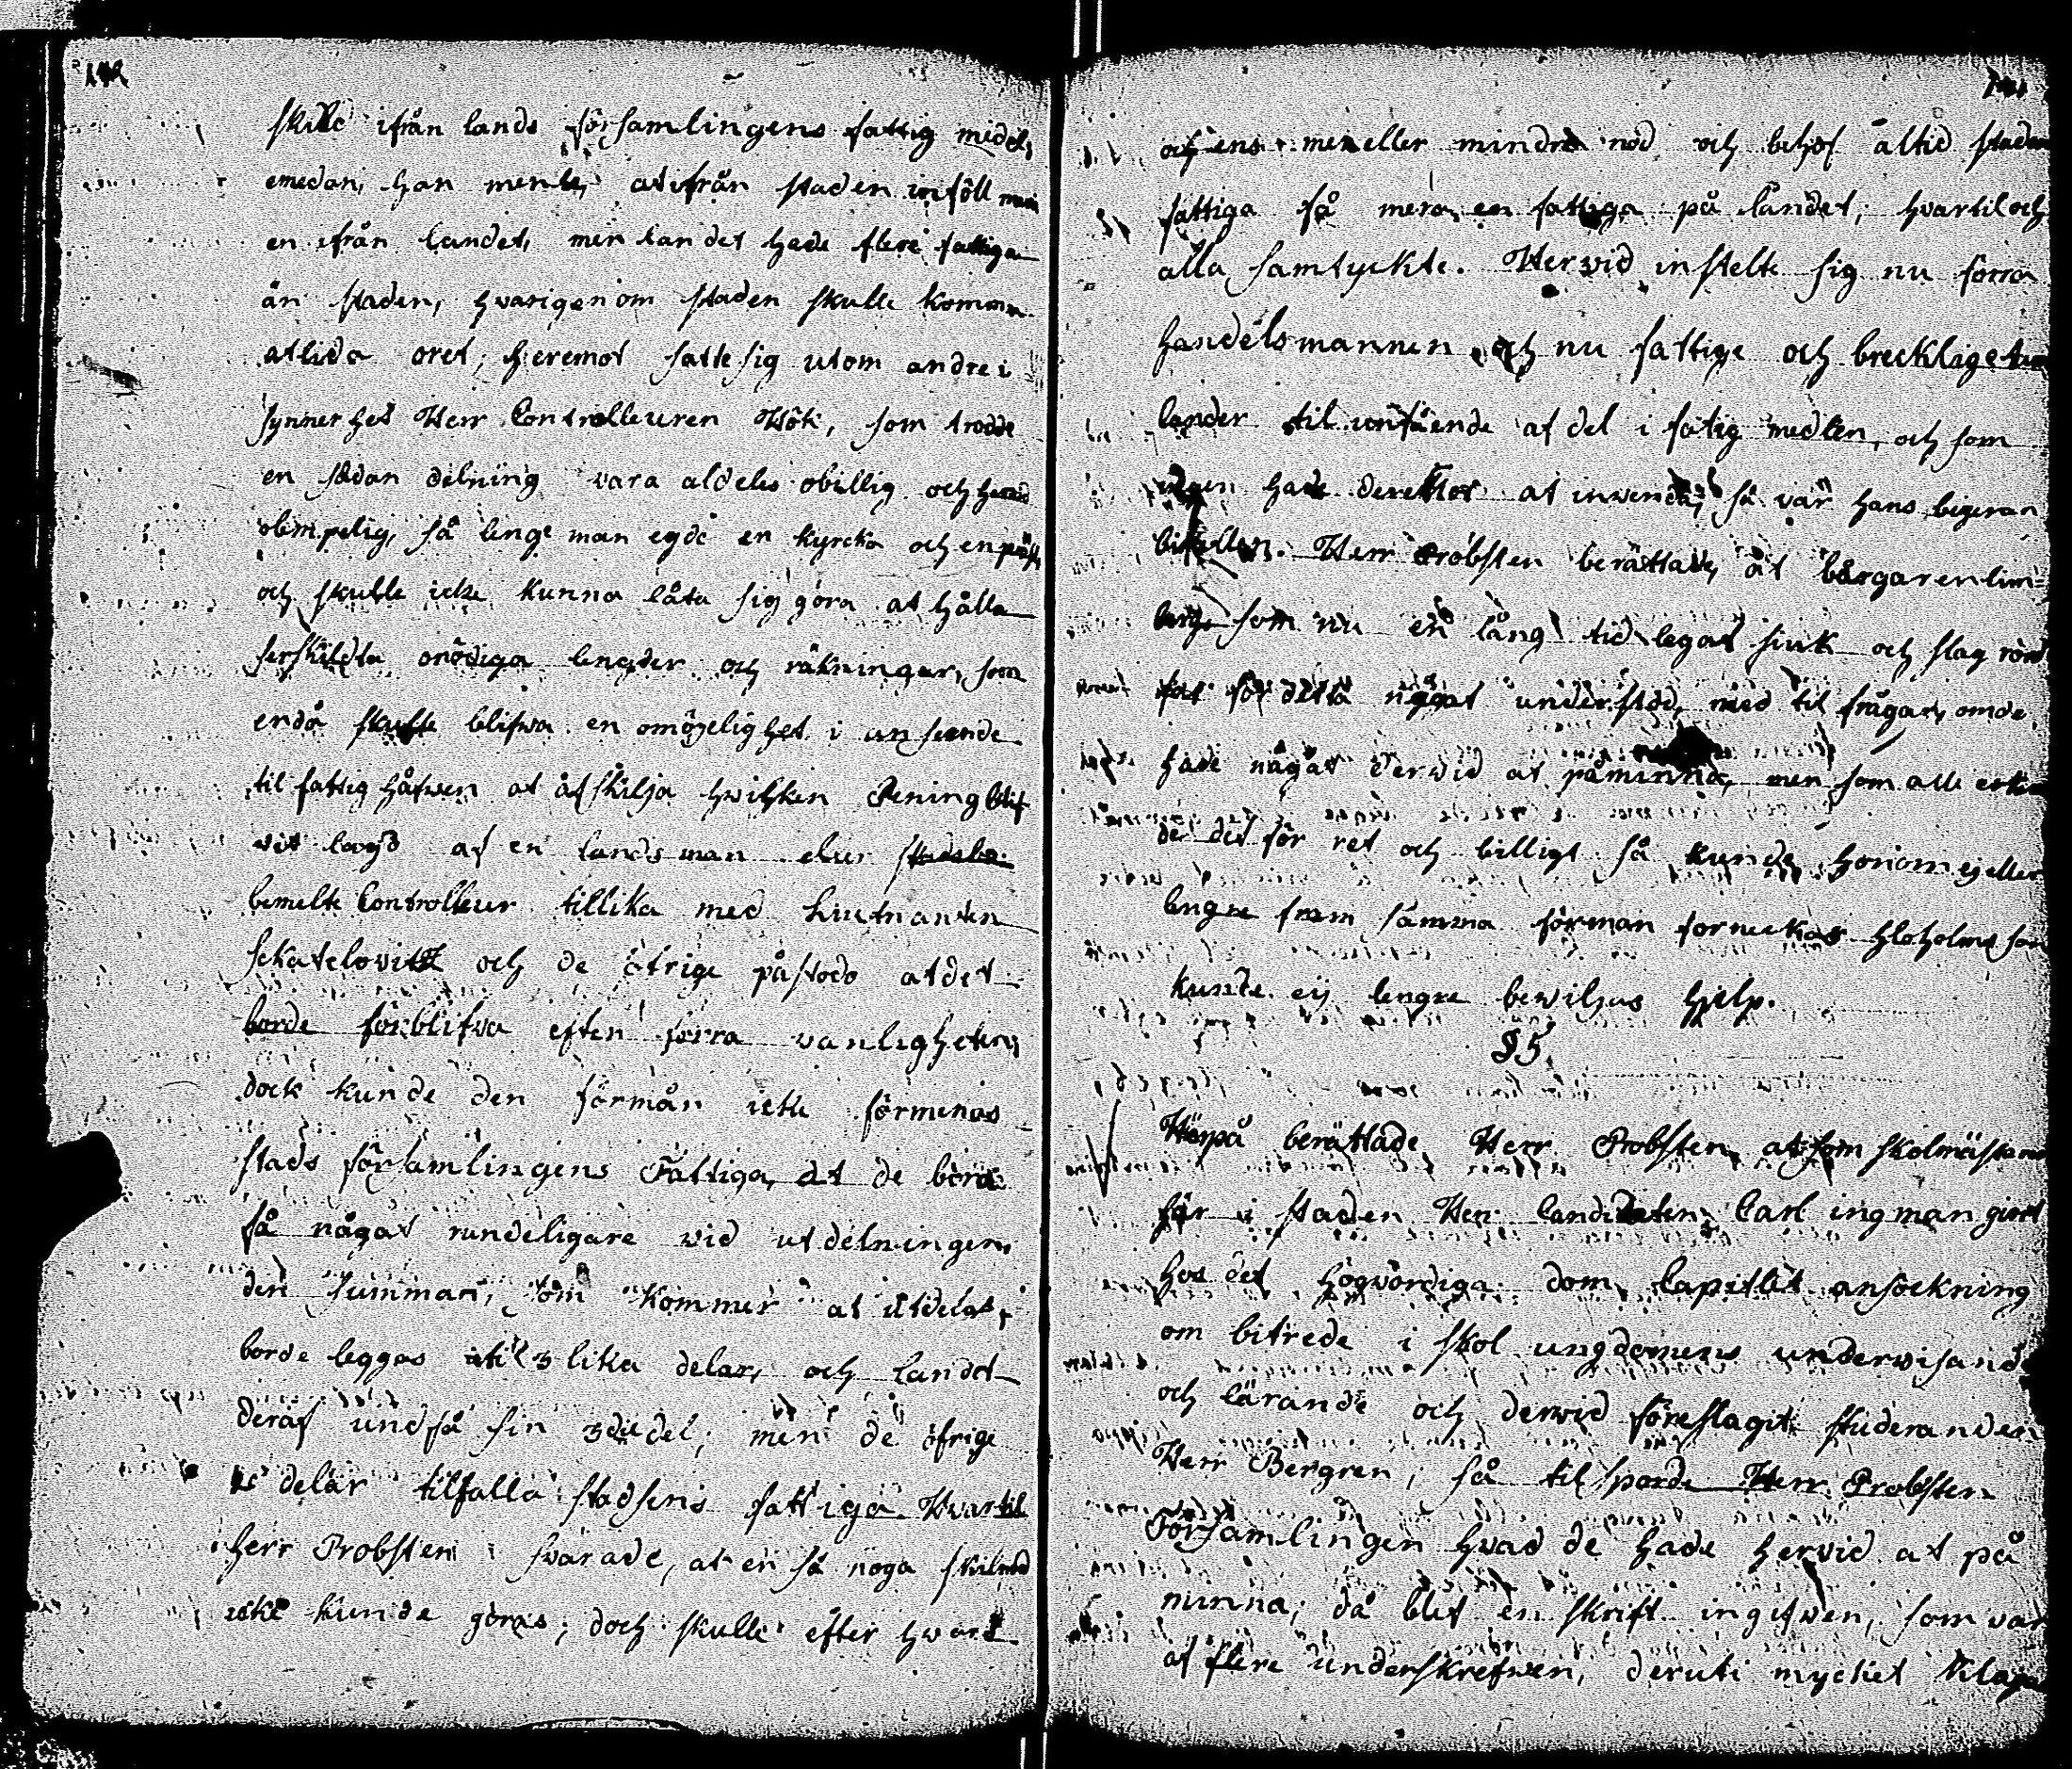 skild ifrån lands församlingens fattig medel,
emedan, han mente, at ifrån staden inföll mera
en ifrån landet, men landet hade flere fattiga
än staden, hvarigenom staden skulle komma
at lida oret; heremot satte sig utom andre i
synnerhet Herr Controlleuren Höök, som trodde
en sådan delning vara aldeles obillig och
olimpelig, så lenge man egde en kyrcka och en
och skulle icke kunna låta sig göra at hålla
serskildta onödiga lengder och räkningar, som
endå skulle blifwa en omöjelighet i anseende
til fattig håfwen at åfskilja hwilken Pening blif
vit lagd af en landsman eller stadsbo.
bemelte Controlleur tillika med Lieutnanten
Schatelovitz och de öfrige påstodo at det
borde förblifwa efter förra vanligheten,
dock kunde den förmån icke förmenas
stads församlingens Fattiga, at de böra
få något rundeligare wid utdelningen,
den summan, som kommer at utdelas,
borde leggas uti 3 lika delar, och landet
deraf undfå sin 3die del; men de öfrige
2 delar tilfalla stadsens fattiga. Hvartil
Herr Probsten svarade, at en så noga skilnad
icke kunde göras; doch skulle efter hvars
och ens mer eller mindre nöd och behof altid staden
fattiga få mera en fattiga på landet; hvartil och
alla samtyckte. Herwid instelte sig nu förra
handelsmannen och nu fattige och brecklige
lander til undfående af del i fatig medlen, och som
ingen hade deremot at inwenda, så var hans begeran
bifallen. Herr Probsten berättade, at borgaren Lim=
berg som nu en lång tid legat siuk och slag rörd
fåt för detta något understöd, med til frågan, om de
hade något derwid at påminna, men som alle erkän
de det för ret och billigt så kunde honom ej eller
lengre fram samma förmån forneckas
kunde ej lengre bewiljas hjelp.
§ 5
Herpå berättade Herr Probsten at som skolmästaren
här i staden Herr Candidaten Carl Ingman giort
hos det högvördiga dom Capitlet ansöckning
om biträde i skol ungdomens underwisande
och lärande och derwid föreslagit studeranden
Herr Bergren, så til sporde Herr Probsten
Församlingen hvad de hade hervid at på
minna; då blef en skrift ingifwen, som var
af flere underskrefwen, deruti mycket